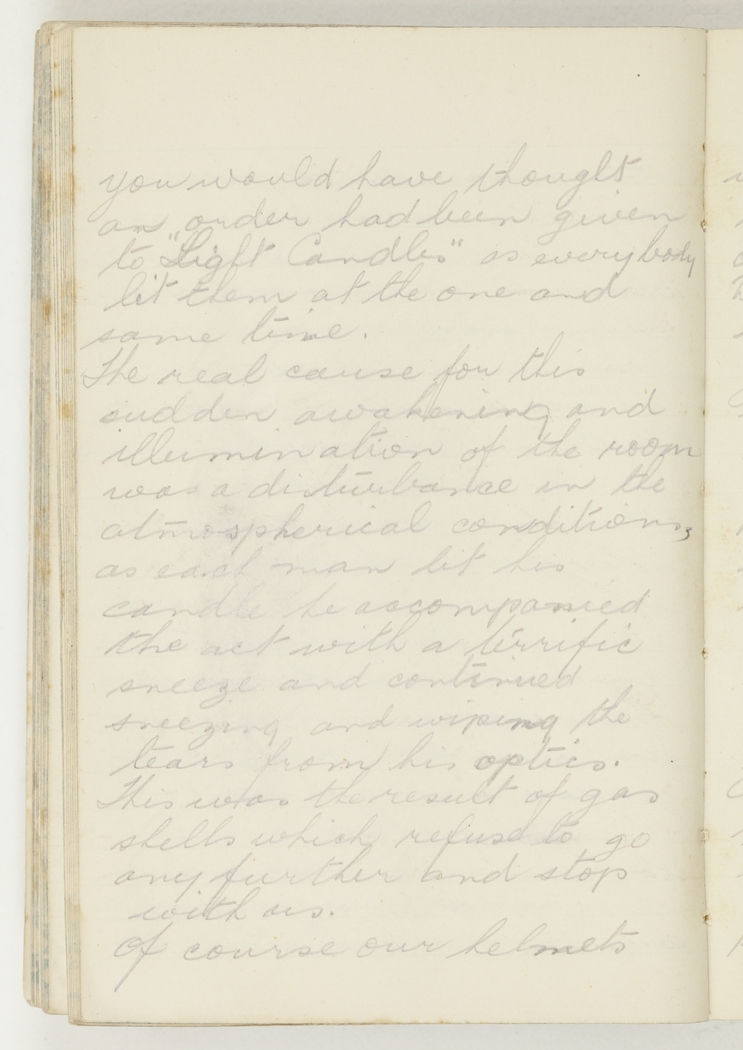 you would have thought
an order had been given
to "Light Candles" as everybody
lit them at the one and
same time.
The real cause for this
sudden awakening and
illumination of the room
was a disturbance in the
atmospherical conditions,
as each man lit his
candle he accompanied
the act with a terrific
sneeze and continued
sneezing and wiping the
tears from his optics.
This was the result of gas
shells which refuse to go
any further and stop
with us.
Of course our helmets